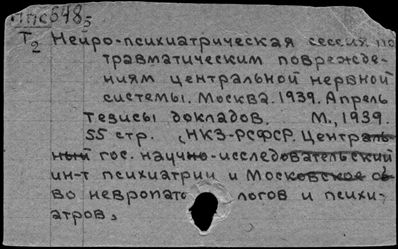 ППС6485
Т2 Нейро-психиатрическая сессия по
травматическим поврежде-
ниям центральной нервной
системы. Москва. 1939. Апрель
тезисы докладов. М., 1939.
55 стр. (НКЗ-РСФСР. Централь-
ный гос. научно-исследовательский
ин-т психиатрии и Московское об-
во невропато логов и психи-
атров.